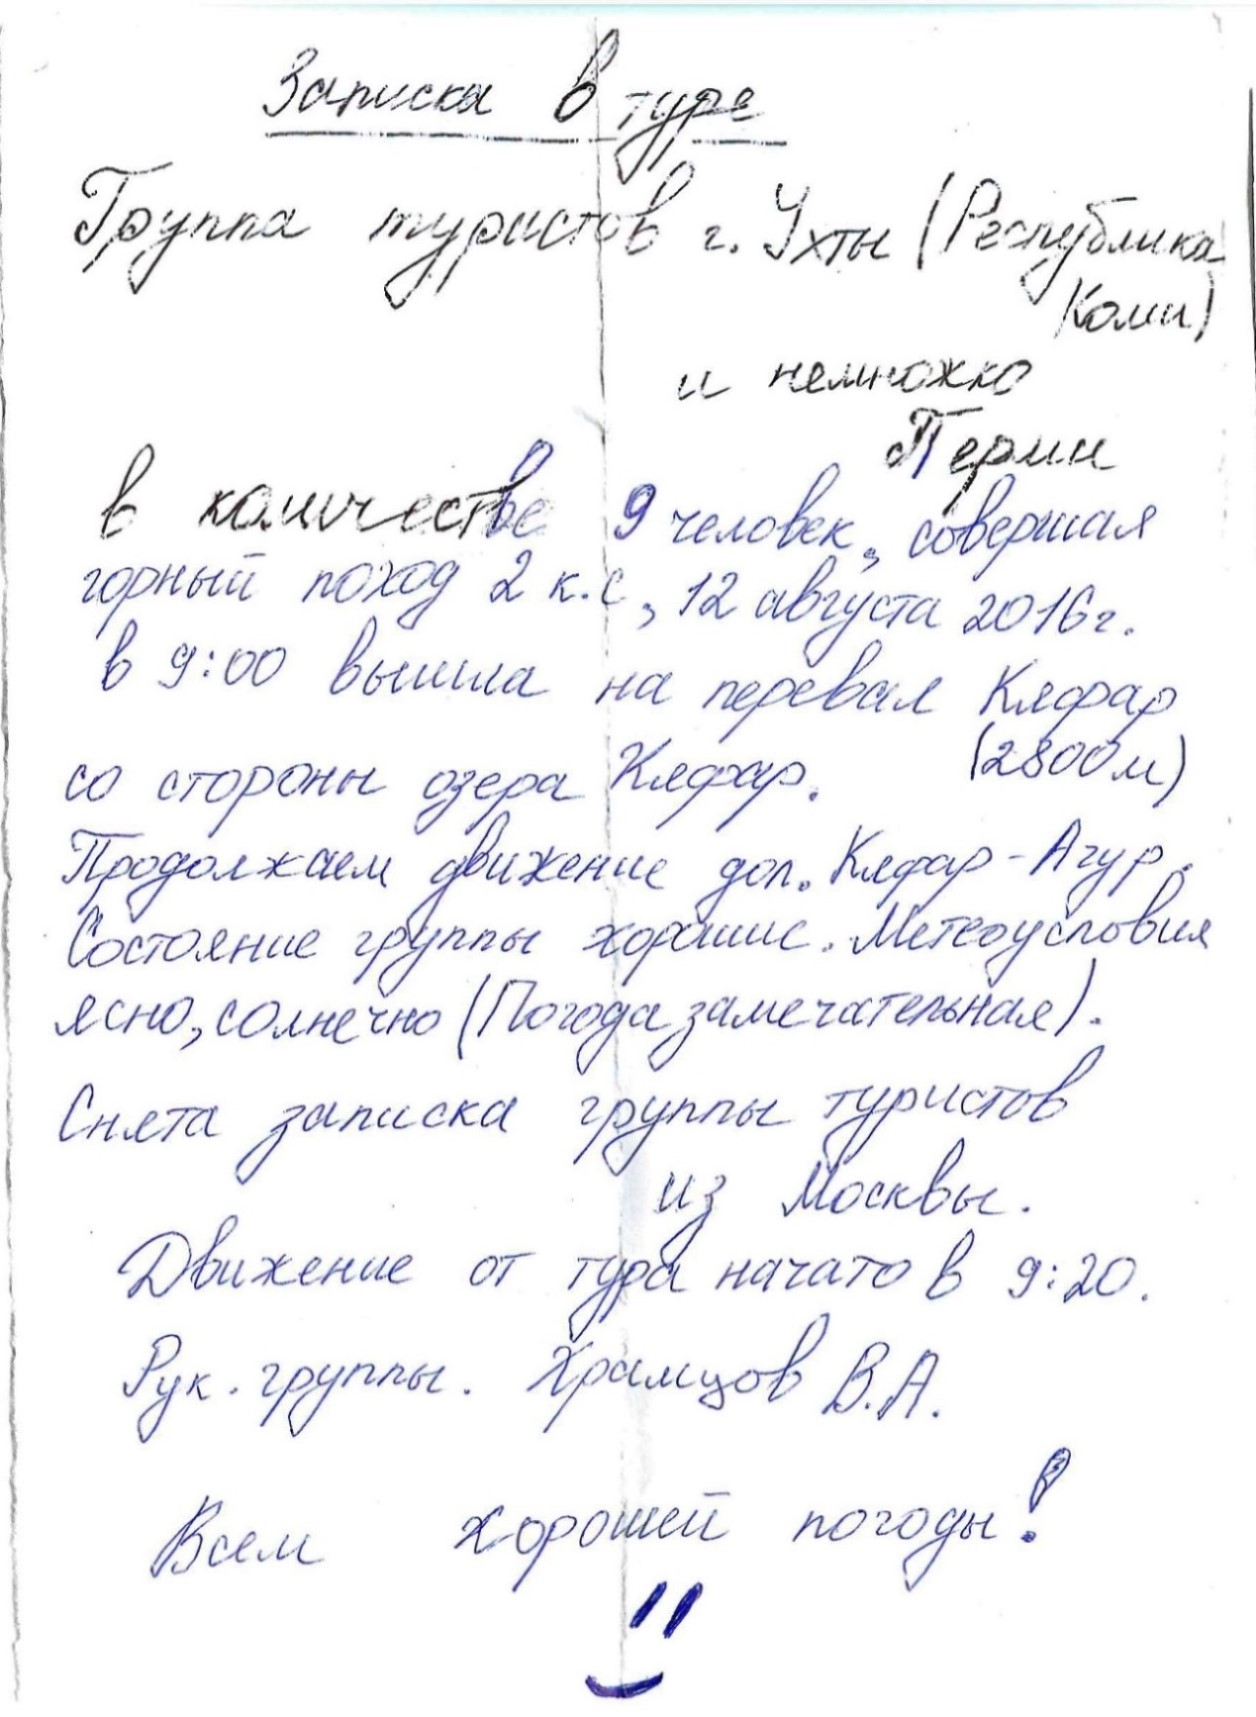 Записка в туре
Группа туристов г. Ухты (Республика
Коми)
и немножко
Перми
в количестве 9 человек, совершая
горный поход 2 к.с, 12 августа 2016г.
в 9:00 вышла на перевал Кяфар
(2800м)
со стороны озера Кяфар.
Продолжаем движение дол. Кяфар-Агур.
Состояние группы хорошие. Метеоусловия
ясно, солнечно (Погода замечательная).
Снята записка группы туристов
из Москвы.
Движение от тура начато в 9:20.
Рук. группы. Храмцов В.А.
Всем хорошей погоды!